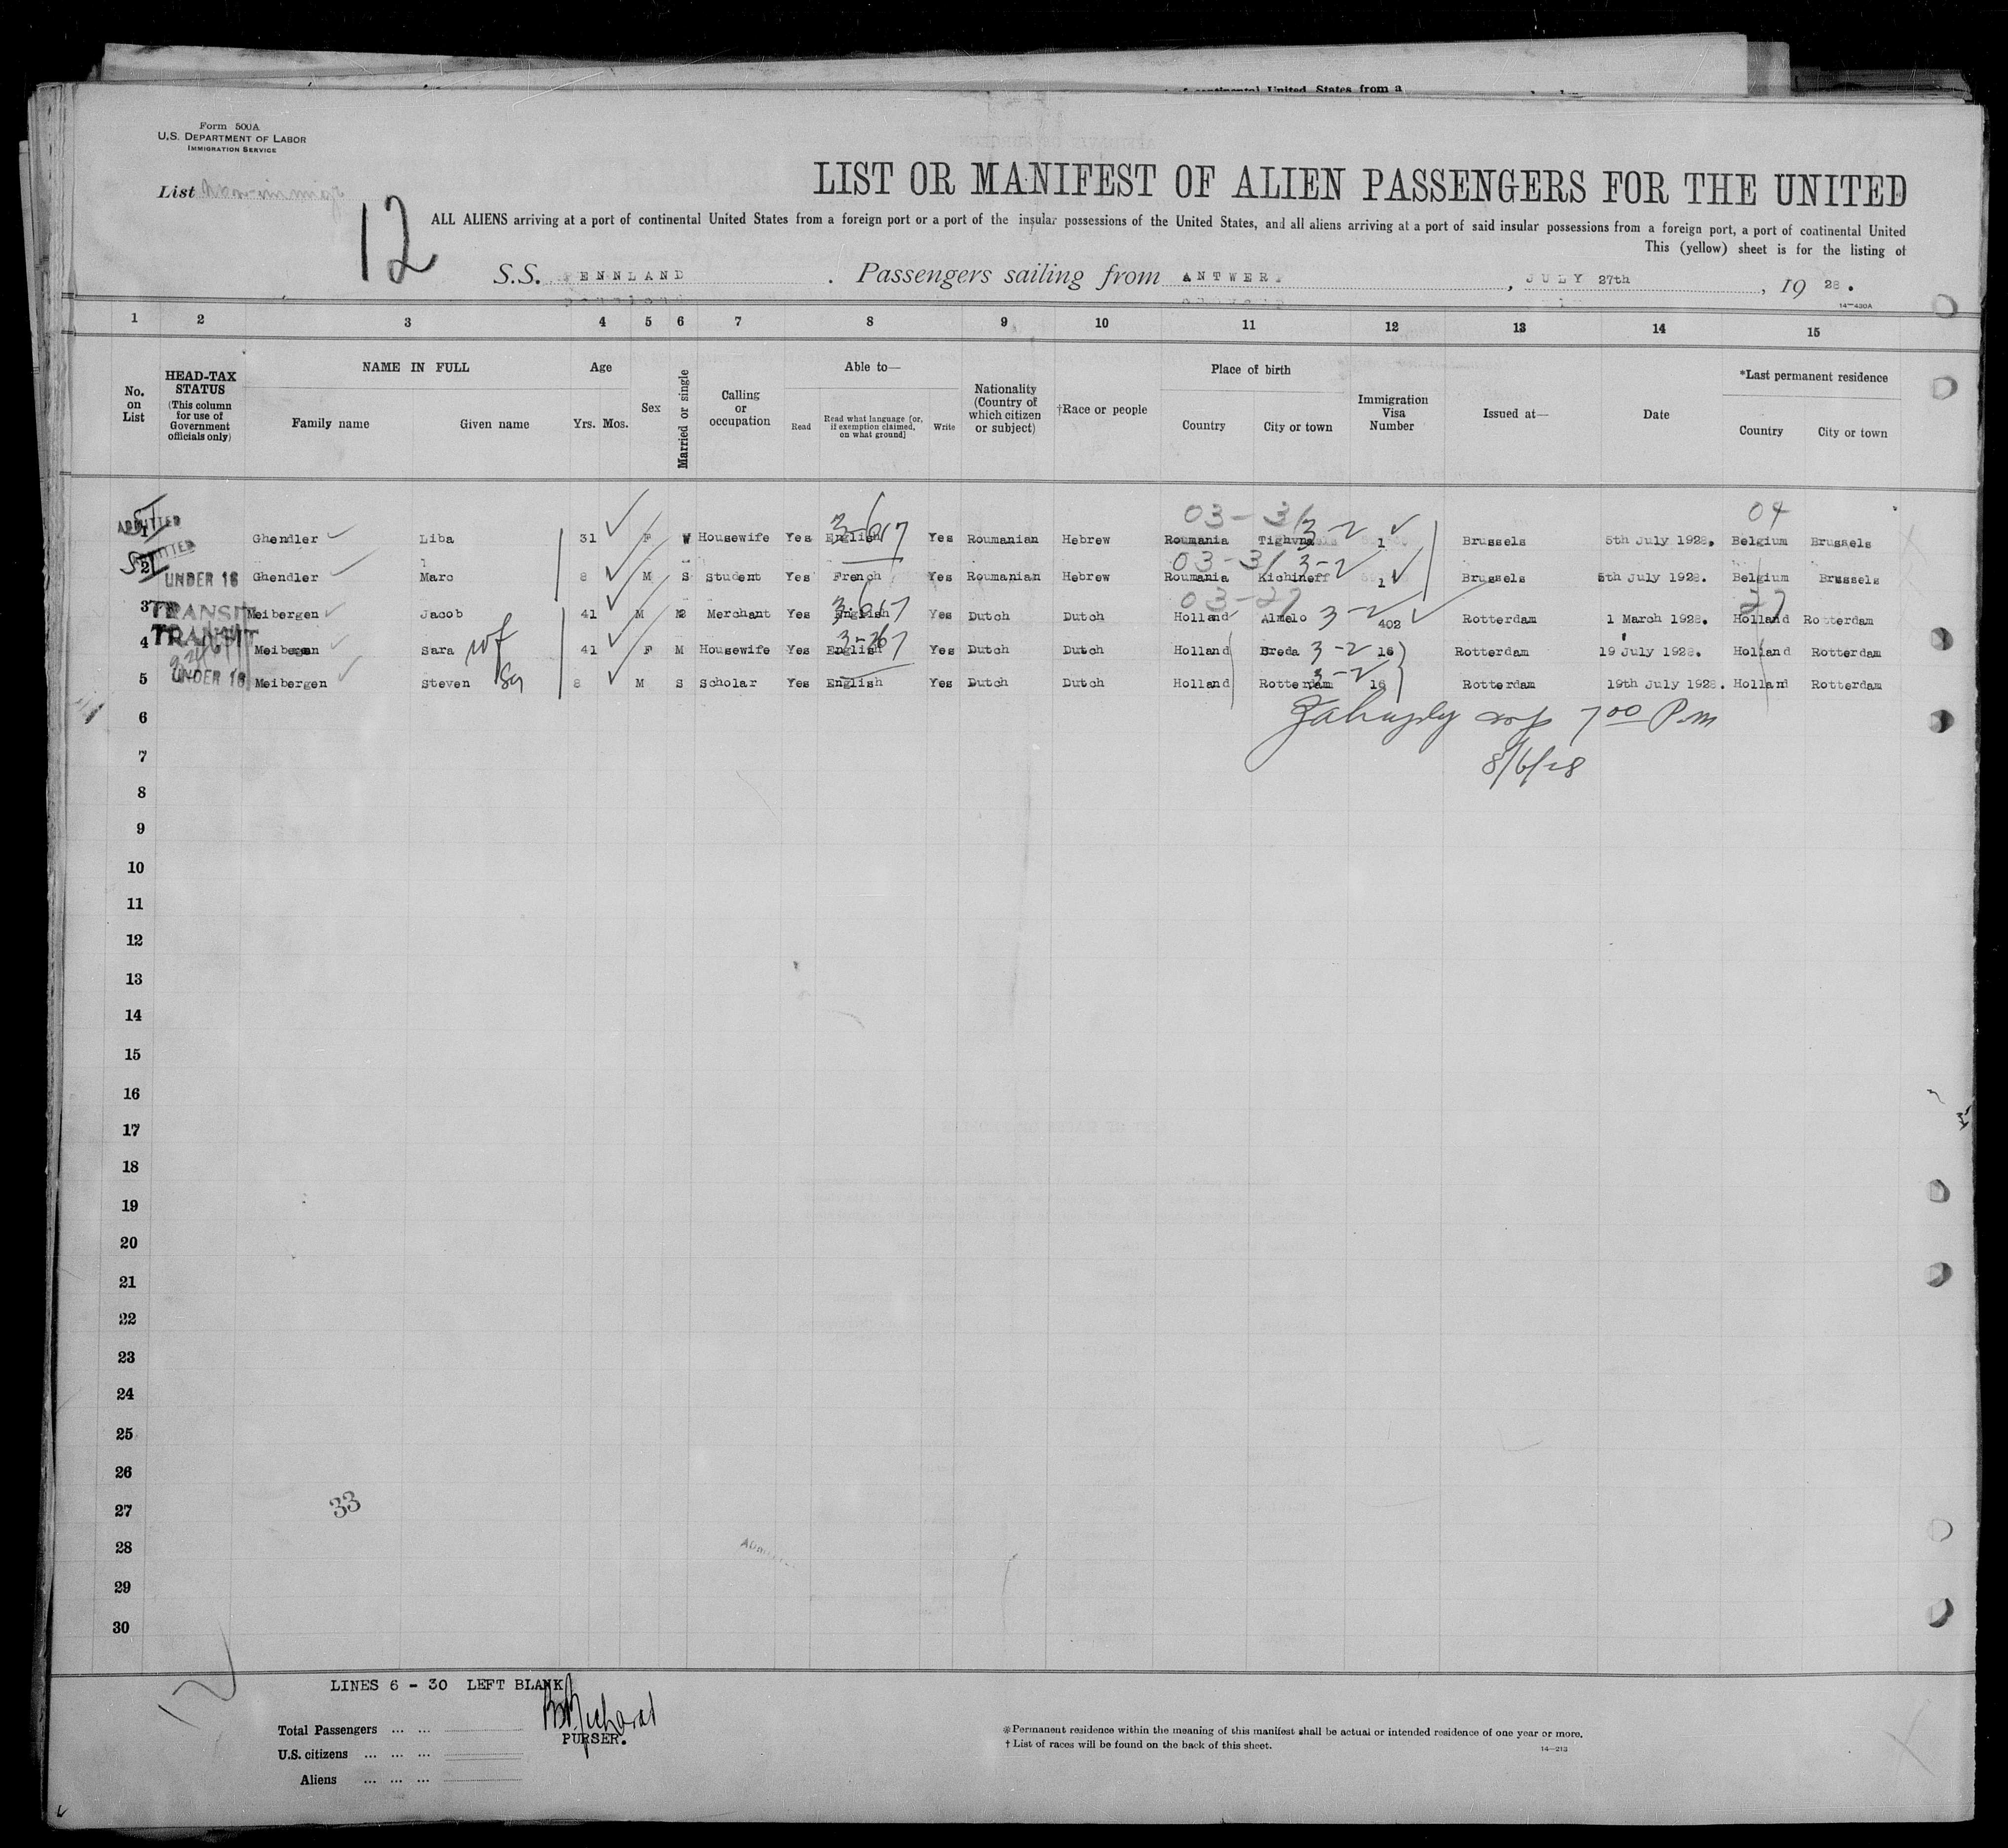 of continental United States from a
Form 500A
U.S. DEPARTMENT OF LABOR
IMMIGRATION SERVICE
List
12
LIST OR MANIFEST OF ALIEN PASSENGERS FOR THE UNITED
ALL ALIENS arriving at a port of continental United States from a foreign port or a port of the insular possessions of the United States, and all aliens arriving at a port of said insular possessions from a foreign port, a port of continental United
This (yellow) sheet is for the listing of
S.S. PENNLAND . Passengers sailing from ANTWERP , JULY 27th , 19 28.
14—430A
1 2 3 4 5 6 7 8 9 10 11 12 13 14 15
No. on List
HEAD-TAX STATUS (This column for use of Government officials only)
NAME IN FULL
Family name Given name
Age
Yrs. Mos.
Sex
Married or single
Calling or occupation
Able to—
Read Read what language [or, if exemption claimed, on what ground] Write
Nationality (Country of which citizen or subject)
†Race or people
Place of birth
Country City or town
Immigration Visa Number
Issued at—
Date
*Last permanent residence
Country City or town
03-31 04
1 ADMITTED Ghendler Liba 31 F W Housewife Yes English Yes Roumanian Hebrew Roumania Tighvna 3-2 1 Brussels 5th July 1928. Belgium Brussels
03-31 3-2
2 ADMITTED UNDER 16 Ghendler Marc 8 M S Student Yes French Yes Roumanian Hebrew Roumania Kichineff 1 Brussels 5th July 1928. Belgium Brussels
03-27 27
3 TRANSIT Meibergen Jacob 41 M M Merchant Yes English Yes Dutch Dutch Holland Almelo 3-2 402 Rotterdam 1 March 1928. Holland Rotterdam
4 TRANSIT Meibergen Sara wf 41 F M Housewife Yes English Yes Dutch Dutch Holland Breda 3-2 16 Rotterdam 19 July 1928. Holland Rotterdam
5 UNDER 16 Meibergen Steven 8 M S Scholar Yes English Yes Dutch Dutch Holland Rotterdam 3-2 16 Rotterdam 19th July 1928. Holland Rotterdam
6 7 00 P.m
7 8/6/28
8
9
10
11
12
13
14
15
16
17
18
19
20
21
22
23
24
25
26
27 33
28
29
30
LINES 6 - 30 LEFT BLANK
Total Passengers ... ...
PURSER.
U.S. citizens ... ... ...
Aliens ... ... ...
*Permanent residence within the meaning of this manifest shall be actual or intended residence of one year or more.
† List of races will be found on the back of this sheet.
14—213